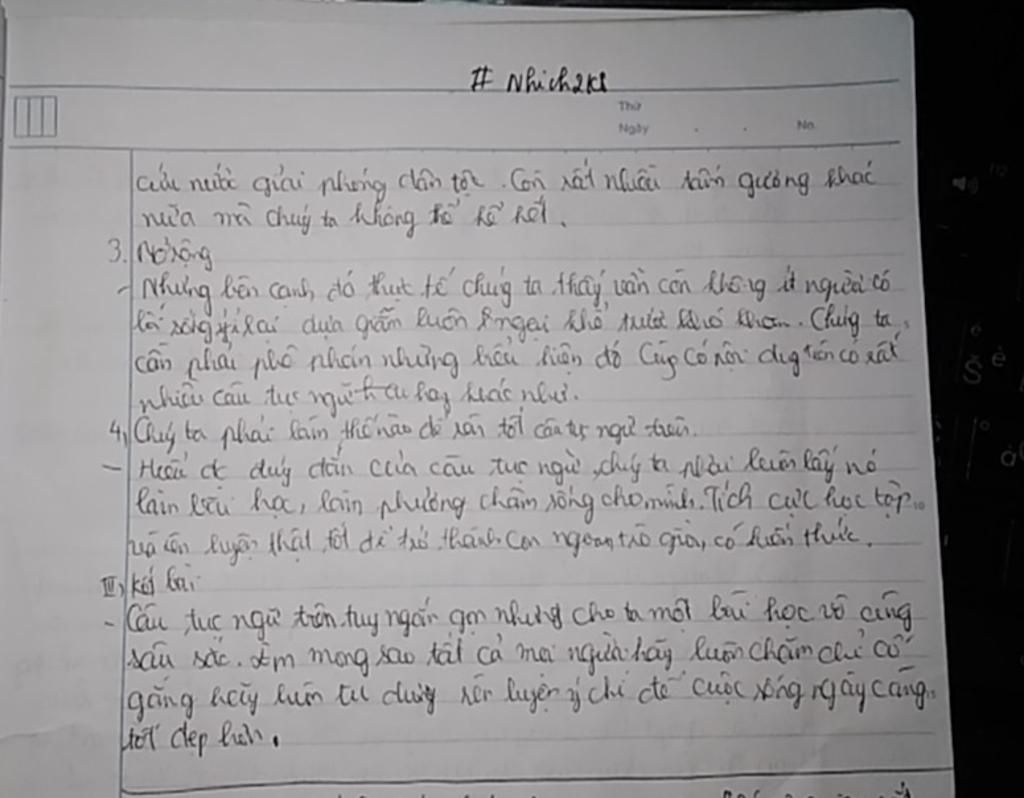 # Nhich2k8
Thứ
Ngày . . No.
cứu nước giải phóng dân tộc. Còn rất nhiều tấm gương khác
nữa mà chúng ta không thể kể hết.
3. Mở rộng
- Nhưng bên cạnh đó thực tế chúng ta thấy vẫn còn không ít người có
lối sống ỷ lại dựa giẫm luôn ngại khổ trước khó khăn. Chúng ta
cần phải phê phán những biểu hiện đó Cùng có nội dung trên có rất
nhiều câu tục ngữ hay khác như.
4, Chúng ta phải làm thế nào để tốt câu tục ngữ trên.
- Hiểu đc đúng đắn của câu tục ngữ, chúng ta phải luôn lấy nó
làm bài học, làm phương châm sống cho mình. Tích cực học tập
và rèn luyện thật tốt để trở thành con ngoan trò giỏi, có kiến thức.
III, Kết bài
- Câu tục ngữ trên tuy ngắn gọn nhưng cho ta một bài học vô cùng
sâu sắc. Em mong sao tất cả mọi người hãy luôn chăm chỉ cố
gắng hãy luôn tu dưỡng rèn luyện ý chí để cuộc sống ngày càng
tốt đẹp hơn.